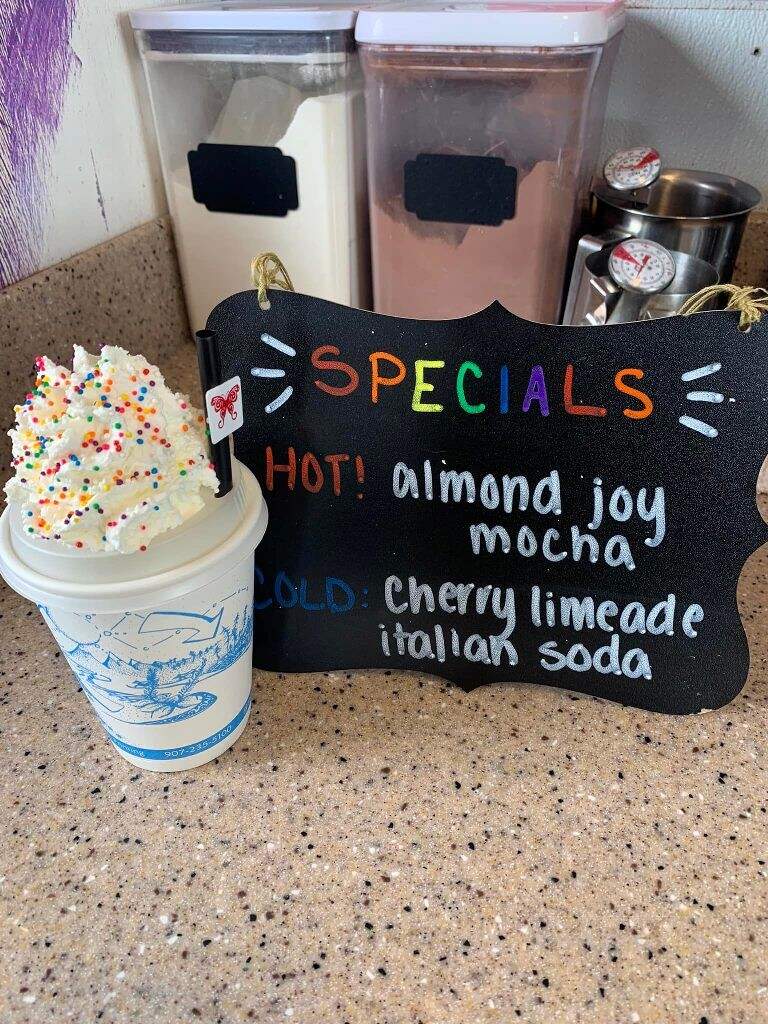 SPECIALS
HOT! almond joy
mocha
COLD: Cherry limeade
italian soda
907-235-5100